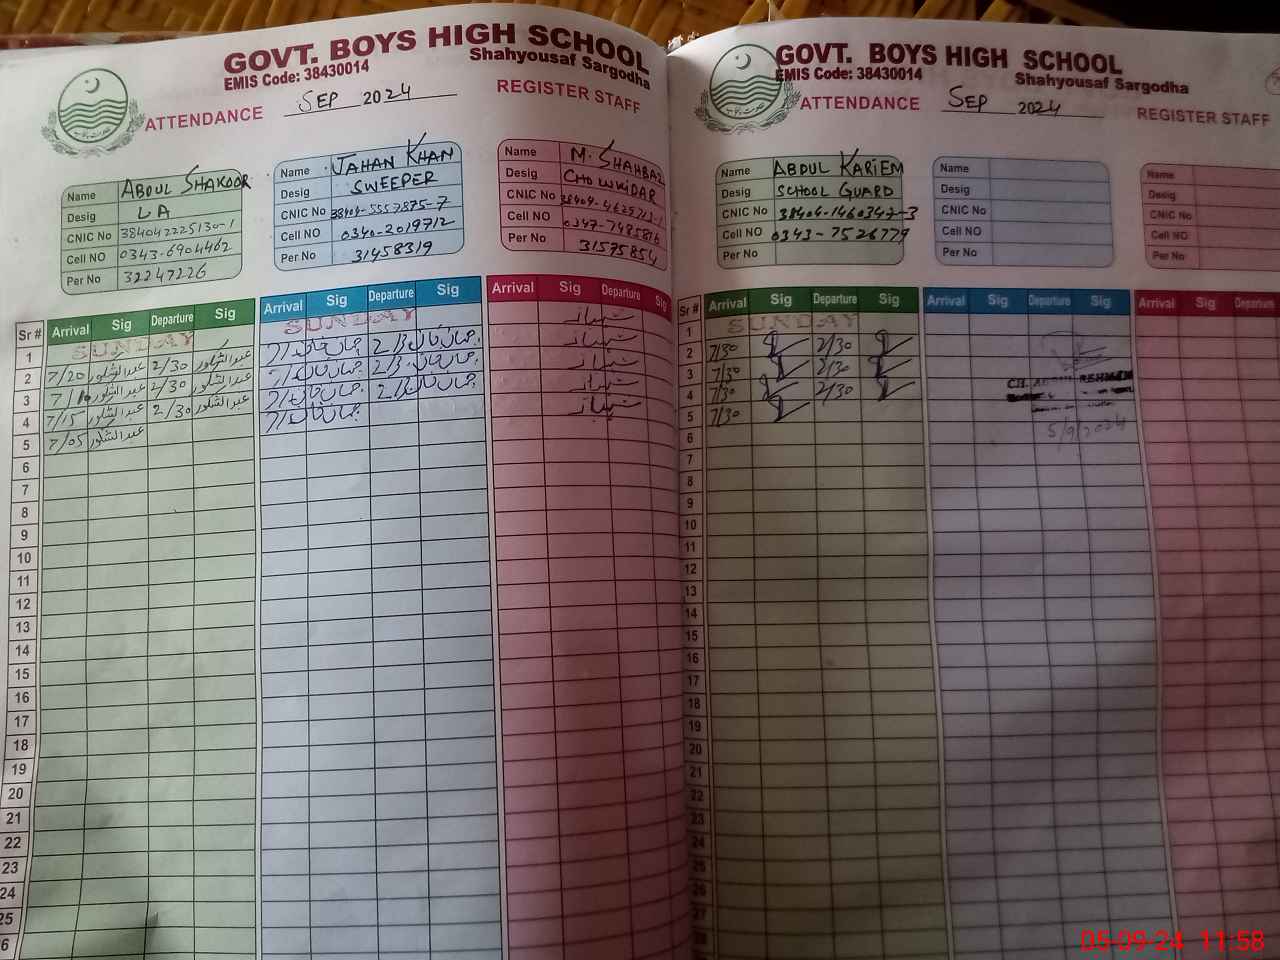 GOVT. BOYS HIGH SCHOOL
EMIS Code: 38430014
Shahyousaf Sargodha
ATTENDANCE SEP 2024 REGISTER STAFF
Name ABDUL SHAKOOR
Desig LA
CNIC No 384042225130-1
Cell NO 0343-6904462
Per No 32247226
Name JAHAN KHAN
Desig SWEEPER
CNIC No 38404-5557875-7
Cell NO 0340-2019712
Per No 31458319
Name M. SHAHBAZ
Desig CHOWKIDAR
CNIC No 38404-4625713-1
Cell NO 0347-7485816
Per No 31575854
Sr # Arrival Sig Departure Sig Arrival Sig Departure Sig Arrival Sig Departure Sig
1 SUNDAY SUNDAY شہباز
2 7/20 عبدالشکور 2/30 عبدالشکور جہان خان جہان خان شہباز
3 7/10 عبدالشکور 2/30 عبدالشکور جہان خان جہان خان شہباز
4 7/15 عبدالشکور 2/30 عبدالشکور جہان خان جہان خان شہباز
5 7/05 عبدالشکور جہان خان شہباز
6
7
8
9
10
11
12
13
14
15
16
17
18
19
20
21
22
23
24
25
GOVT. BOYS HIGH SCHOOL
EMIS Code: 38430014
Shahyousaf Sargodha
ATTENDANCE SEP 2024 REGISTER STAFF
Name ABDUL KARIEM
Desig SCHOOL GUARD
CNIC No 38404-1460347-3
Cell NO 0343-7526779
Per No
Name
Desig
CNIC No
Cell NO
Per No
Name
Desig
CNIC No
Cell NO
Per No
Sr # Arrival Sig Departure Sig Arrival Sig Departure Sig Arrival Sig Departure
1 SUNDAY
2 7/30 2/30
3 7/30 2/30
4 7/30 2/30
5 7/30
5/9/2024
6
7
8
9
10
11
12
13
14
15
16
17
18
19
20
21
22
23
24
25
26
27
28
05-09-24 11:58